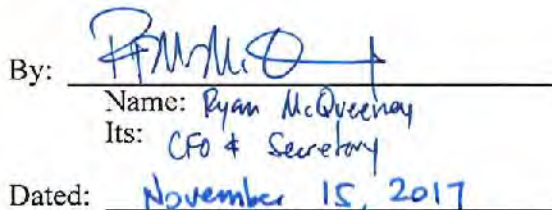 By:
Name: Ryan McQueeney
Its: CFO & Secretary
Dated: November 15, 2017